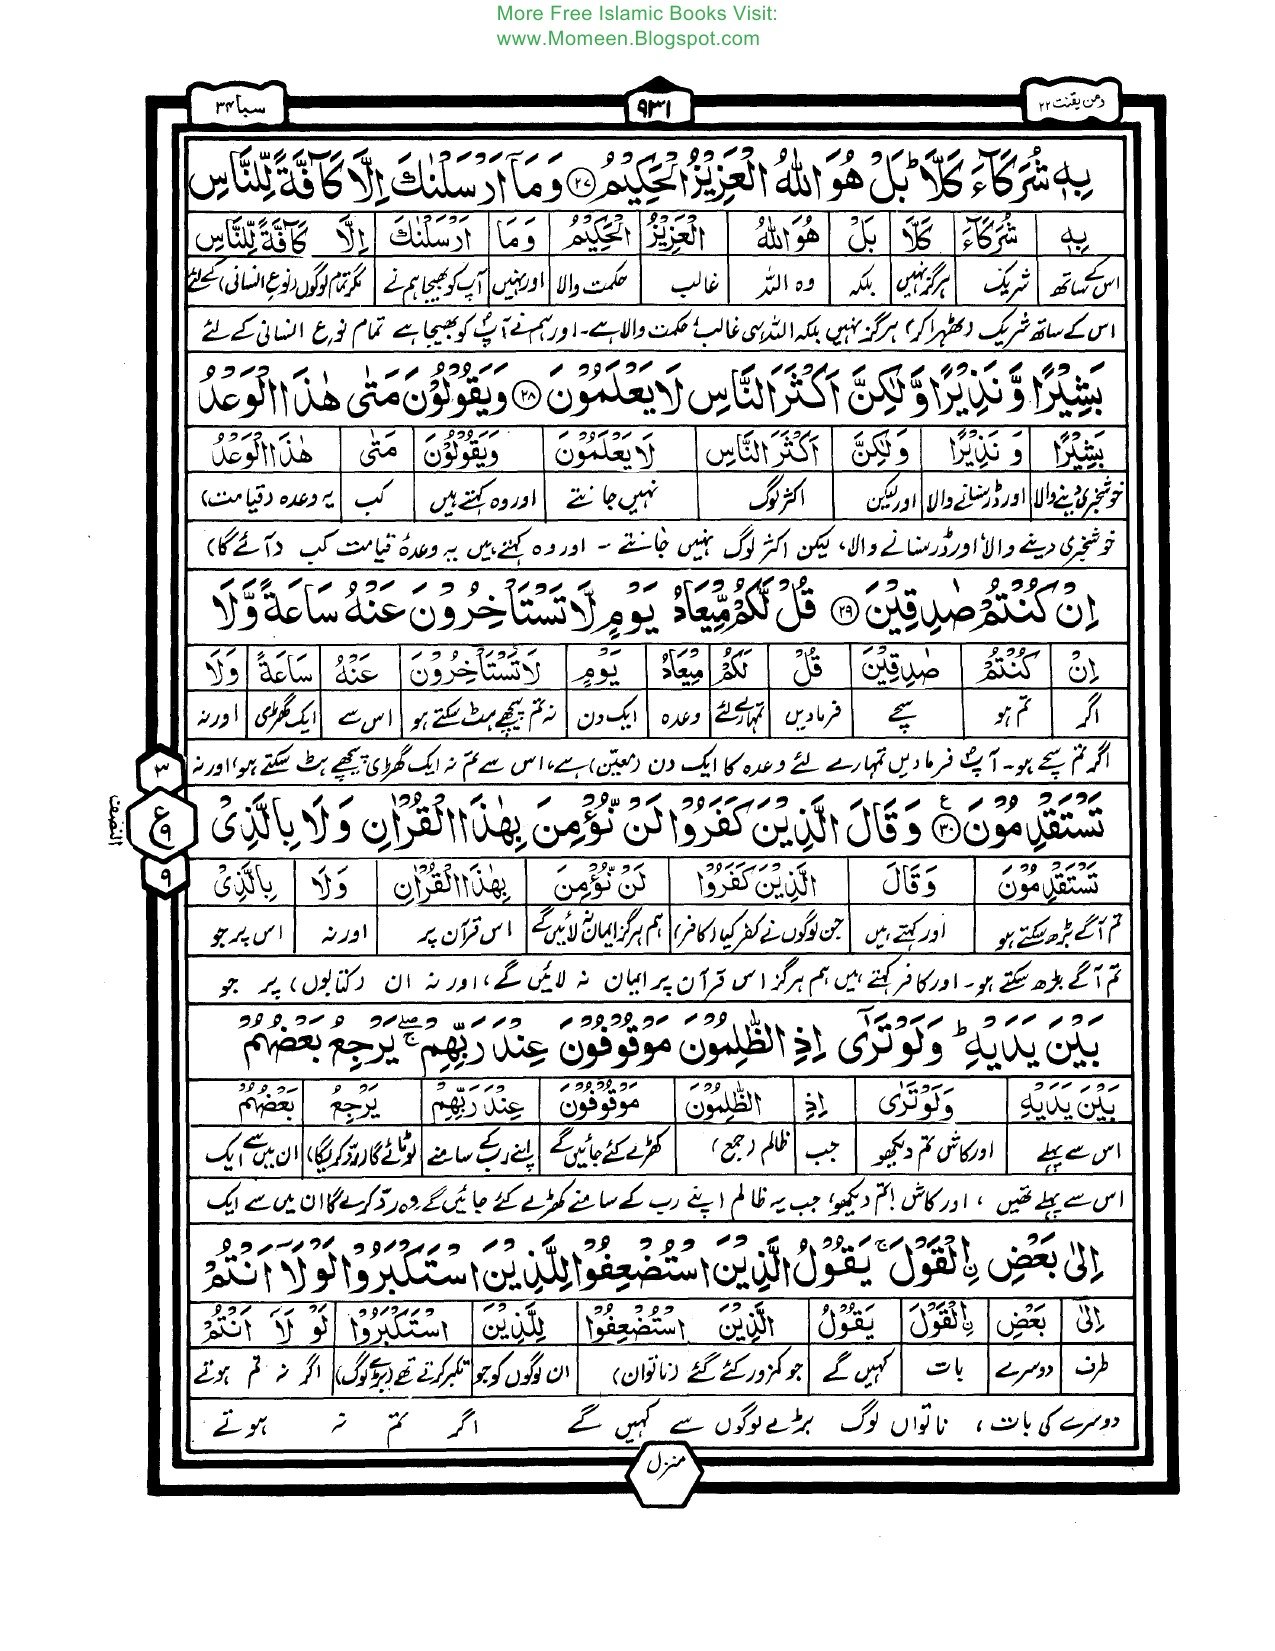 More Free Islamic Books Visit:
www.Momeen.Blogspot.com
ومن یقنت ۲۲
۹۳۱
سبا ۳۴
بِهٖ شُرَكَآءَ كَلَّا ؕ بَلْ هُوَ اللّٰهُ الْعَزِیْزُ الْحَكِیْمُ ۝۲۷ وَ مَاۤ اَرْسَلْنٰكَ اِلَّا كَآفَّةً لِّلنَّاسِ
بِهٖ شُرَكَآءَ كَلَّا بَلْ هُوَ اللّٰهُ الْعَزِیْزُ الْحَكِیْمُ وَمَا اَرْسَلْنٰكَ اِلَّا كَآفَّةً لِّلنَّاسِ
اس کے ساتھ شریک ہرگز نہیں بلکہ وہ اللہ غالب حکمت والا اور نہیں آپ کو بھیجا ہم نے مگر تمام لوگوں (نوع انسانی) کے لئے
اس کے ساتھ شریک (ٹھہرا کر) ہرگز نہیں بلکہ اللہ ہی غالب حکمت والا ہے۔ اور ہم نے آپؐ کو بھیجا ہے تمام نوع انسانی کے لئے
بَشِیْرًا وَّ نَذِیْرًا وَّ لٰكِنَّ اَكْثَرَ النَّاسِ لَا یَعْلَمُوْنَ ۝۲۸ وَ یَقُوْلُوْنَ مَتٰى هٰذَا الْوَعْدُ
بَشِیْرًا وَ نَذِیْرًا وَلٰكِنَّ اَكْثَرَ النَّاسِ لَا یَعْلَمُوْنَ وَیَقُوْلُوْنَ مَتٰى هٰذَا الْوَعْدُ
خوشخبری دینے والا اور ڈر سنانے والا اور لیکن اکثر لوگ نہیں جانتے اور وہ کہتے ہیں کب یہ وعدہ (قیامت)
خوشخبری دینے والا اور ڈر سنانے والا، لیکن اکثر لوگ نہیں جانتے - اور وہ کہتے ہیں یہ وعدۂ قیامت کب (آئے گا)
اِنْ كُنْتُمْ صٰدِقِیْنَ ۝۲۹ قُلْ لَّكُمْ مِّیْعَادُ یَوْمٍ لَّا تَسْتَاْخِرُوْنَ عَنْهُ سَاعَةً وَّ لَا
اِنْ كُنْتُمْ صٰدِقِیْنَ قُلْ لَكُمْ مِیْعَادُ یَوْمٍ لَا تَسْتَاْخِرُوْنَ عَنْهُ سَاعَةً وَّلَا
اگر تم ہو سچے فرمادیں تمہارے لئے وعدہ ایک دن نہ تم پیچھے ہٹ سکتے ہو اس سے ایک گھڑی اور نہ
اگر تم سچے ہو۔ آپؐ فرمادیں تمہارے لئے وعدہ کا ایک دن (معین) ہے، اس سے تم نہ ایک گھڑی پیچھے ہٹ سکتے ہو، اور نہ
۳
ع
۹
۹
النصف
تَسْتَقْدِمُوْنَ ۝۳۰ وَ قَالَ الَّذِیْنَ كَفَرُوْا لَنْ نُّؤْمِنَ بِهٰذَا الْقُرْاٰنِ وَ لَا بِالَّذِیْ
تَسْتَقْدِمُوْنَ وَقَالَ الَّذِیْنَ كَفَرُوْا لَنْ نُّؤْمِنَ بِهٰذَا الْقُرْاٰنِ وَلَا بِالَّذِیْ
تم آگے بڑھ سکتے ہو اور کہتے ہیں جن لوگوں نے کفر کیا (کافر) ہم ہرگز ایمان نہ لائیں گے اس قرآن پر اور نہ اس پر جو
تم آگے بڑھ سکتے ہو۔ اور کافر کہتے ہیں ہم ہرگز اس قرآن پر ایمان نہ لائیں گے، اور نہ ان (کتابوں) پر جو
بَیْنَ یَدَیْهِ ؕ وَ لَوْ تَرٰۤى اِذِ الظّٰلِمُوْنَ مَوْقُوْفُوْنَ عِنْدَ رَبِّهِمْ ۖۚ یَرْجِعُ بَعْضُهُمْ
بَیْنَ یَدَیْهِ وَلَوْ تَرٰى اِذِ الظّٰلِمُوْنَ مَوْقُوْفُوْنَ عِنْدَ رَبِّهِمْ یَرْجِعُ بَعْضُهُمْ
اس سے پہلے اور کاش تم دیکھو جب ظالم (جمع) کھڑے کئے جائیں گے اپنے رب کے سامنے لوٹائے گا (رد کریگا) ان میں سے ایک
اس سے پہلے تھیں، اور کاش تم دیکھو! جب یہ ظالم اپنے رب کے سامنے کھڑے کئے جائیں گے، وہ رد کرے گا ان میں سے ایک
اِلٰى بَعْضِ ِ۟الْقَوْلَ ۚ یَقُوْلُ الَّذِیْنَ اسْتُضْعِفُوْا لِلَّذِیْنَ اسْتَكْبَرُوْا لَوْ لَاۤ اَنْتُمْ
اِلٰى بَعْضِ ِ۟الْقَوْلَ یَقُوْلُ الَّذِیْنَ اسْتُضْعِفُوْا لِلَّذِیْنَ اسْتَكْبَرُوْا لَوْ لَا اَنْتُمْ
طرف دوسرے بات کہیں گے جو کمزور کئے گئے (ناتوان) ان لوگوں کو جو تکبر کرتے تھے (بڑے لوگ) اگر نہ تم ہوتے
دوسرے کی بات، ناتواں لوگ بڑے لوگوں سے کہیں گے اگر تم نہ ہوتے
منزل